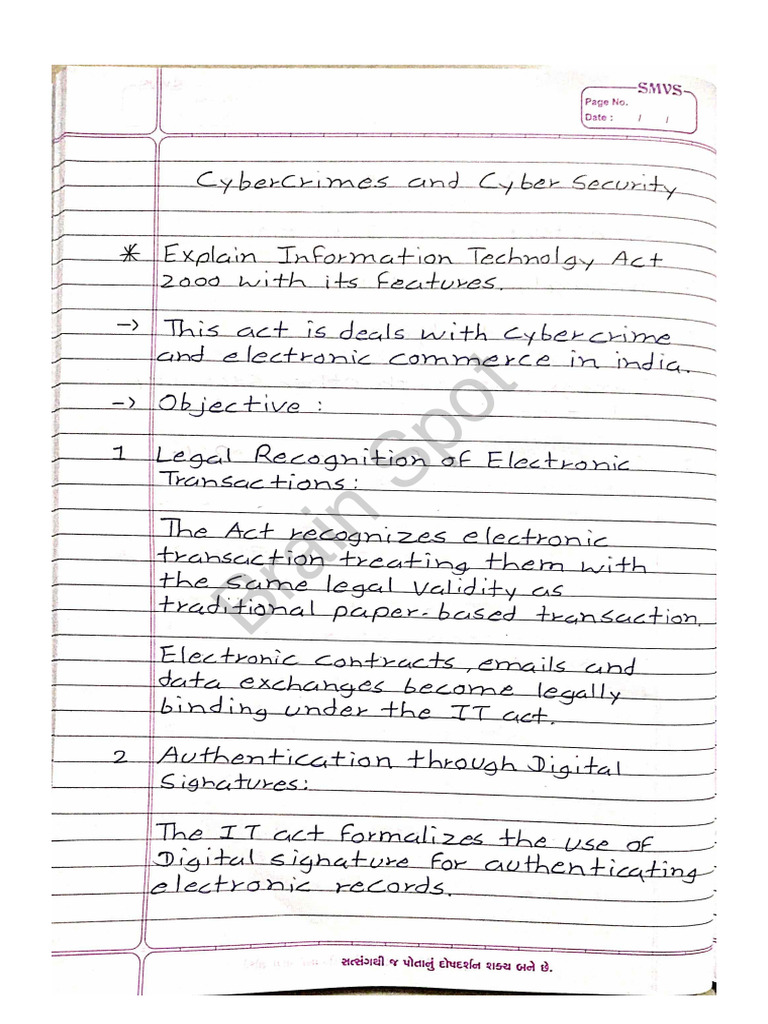 SMVS
Page No.
Date : / /
CyberCrimes and Cyber Security
* Explain Information Technolgy Act
2000 with its features.
-> This act is deals with cybercrime
and electronic commerce in india.
-> Objective :
1 Legal Recognition of Electronic
Transactions:
The Act recognizes electronic
transaction treating them with
the same legal validity as
traditional paper-based transaction.
Electronic contracts, emails and
data exchanges become legally
binding under the IT act.
2 Authentication through Digital
Signatures:
The IT act formalizes the use of
Digital signature for authenticating
electronic records.
Brain Spot
સત્સંગથી જ પોતાનું દોષદર્શન શક્ય બને છે.